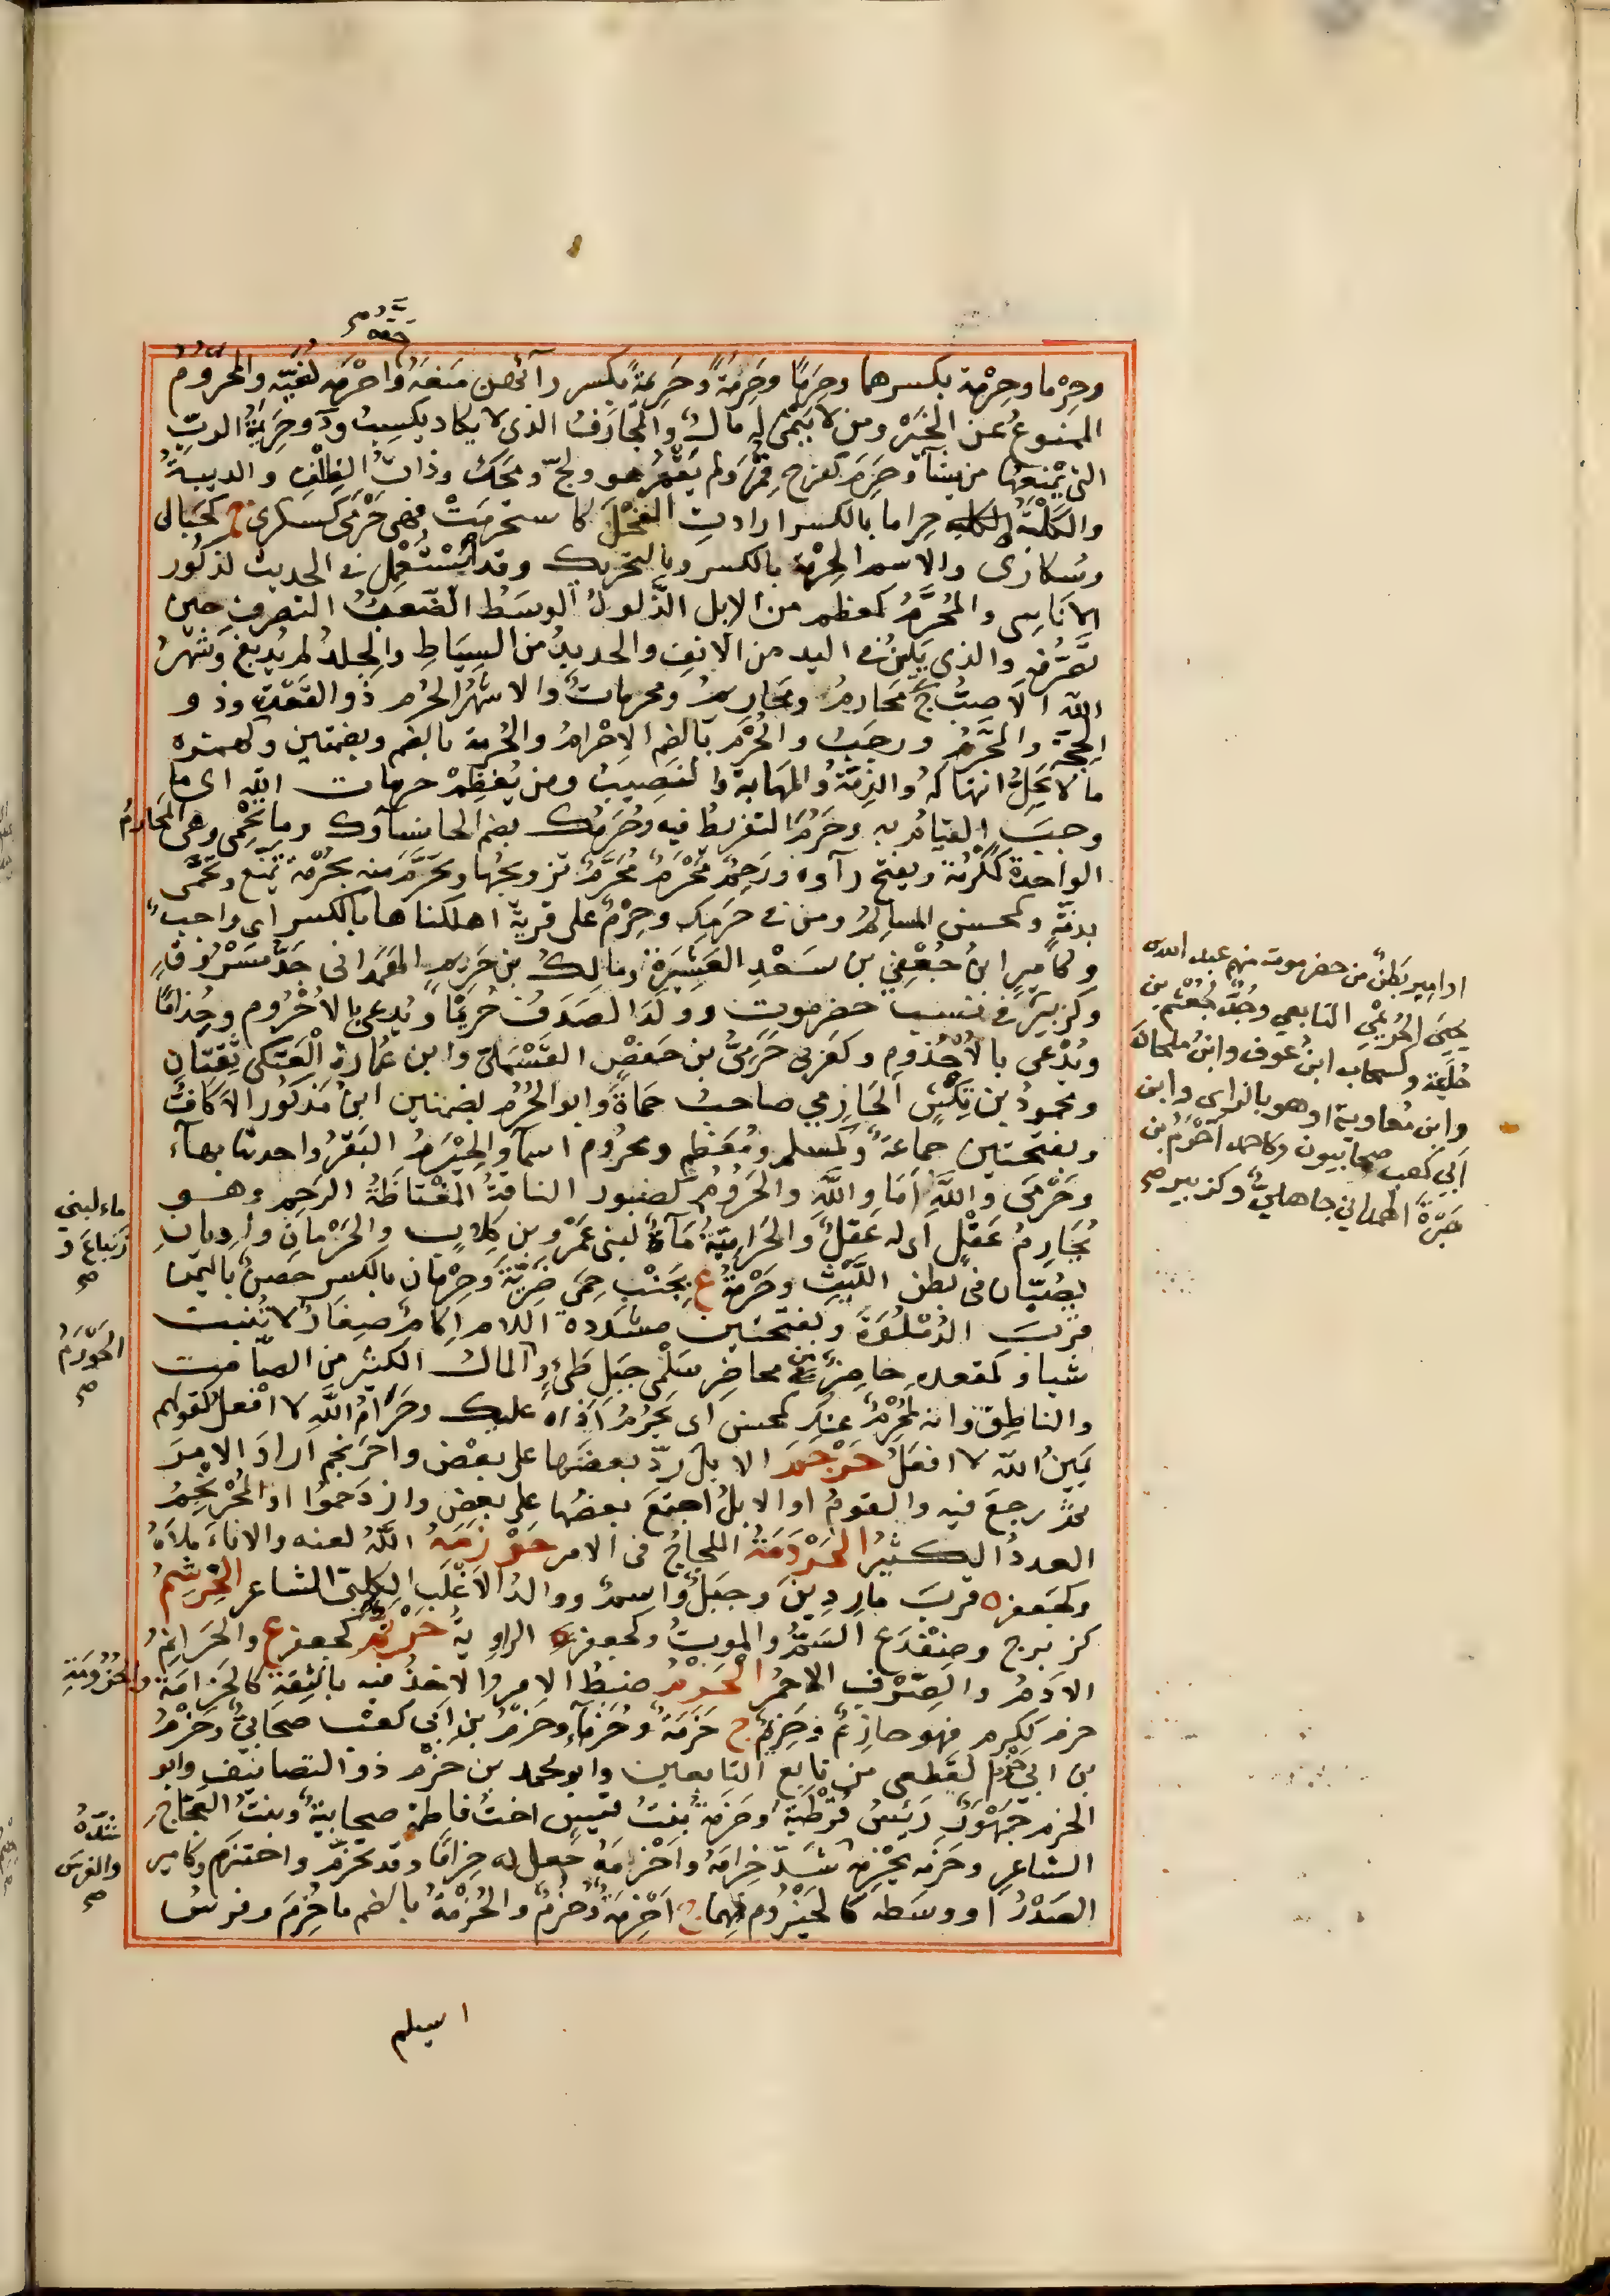 حقه صح
وحِرْما وحِرْمة بكسرهما وحَرِمًا وحَرِمَةً وحَرِيمَةً بكسر رائهن مَنعَهُ واحْرَمَه لُغَيّة والمحروم
الممنوعُ عن الخَيْر ومن لا يَنْمى له مالٌ والمُحارَفُ الذي لا يكاد يكسِبُ و د وحَرِيمَةُ الربِّ
التى يَمْنَعُها من يشآء وحَرِمَ كفرح قُمِرَ ولم يَقْمُر هو ولجّ ومَحَكَ وذاتُ الظِلْفِ والديبةُ
والكَلْبَةُ حِراما بالكسر ارادتِ الفَحْلَ كاستحرمَتْ فهى حَرْمَى كسكرى ج كحَبالى
وسَكارَى والاسم الحِرْمَة بالكسر وبالتحريك وقد اُسْتُعمِل في الحديث لذكُور
الاناسِى والمُحَرَّمُ كمعظم من الابل الذَّلولُ الوسَطُ الصَّعبُ التصرف حين
تَصَرُّفه والذي يَلِينُ في اليد من الانفِ والجديدُ من السِيَاطِ والجِلدُ لم يُدبغ وشَهْرُ
الله الاصبُّ ج مَحارِمُ ومَحارِيمُ ومحرماتٌ والاشهُرُ الحُرُم ذو القعْدة وذو
الحِجّة والمحرَّمُ ورجَبُ والحُرْم بالضم الاحْرامُ والحُرمة بالضم وبضمتين وكهمزه
ما لا يَحِلّ انتهاكه والذِمّةُ والمَهابة والنصِيبُ ومن يُعَظِّمْ حرمات الله اى ما
وجبَ القيامُ به وحَرُمَ التفريطُ فيه وحُرَمُك بضم الحا نسآؤك وما تَحْمى وهي المحارمُ
الواحدة كمَكْرُمَة ويفتح رآوه ورَحِمٌ مَحْرَمٌ مُحَرَّمٌ تزويجُها وتَحَرَّم منه بحُرْمة تمنَّع وتَحَمَّى
بذمّةٍ وكمحسن المسالِمُ ومن في حَرِيمِك وحِرْمٌ على قرية اهلكناها بالكسر اى واجبٌ
وكاميرٍ ابنُ جُعْفِيّ بن سَعْدِ العَشِيَرة ومالكُ بن حَرِيمٍ الهَمَدانى جَدُّ مَسْرُوقٍ
وكزبيرٍ في نسب حضرموتِ وولَدَ الصَدَفُ حُرَيْمًا ويُدعى بالاُحْرُوم وجُذامًا
ويُدْعَى بالاُجْذُوم وكعَرَبي حَرَمِيُّ بن حَفصٍ القَسْمَلىّ وابن عُمارة العَتَكى ثِقَتان
ومحمودُ بن تِكَشٍ الحَارِمي صاحبُ حَماةَ وابو الحُرُم بضمتين ابنُ مَذكُور الاكافُّ
وبفتحتين جماعَةٌ وكمسلم ومُعَظم ومحروم اسمآ والحَيْرَمُ البَقَرُ واحدتها بهآء
وحَرْمَى واللهِ امَا واللهِ والحَرُومُ كصبور الناقةُ المُعْتاطَةُ الرَحِم وهو
بحَارِم عَقْلٍ اى له عَقْلٌ والحَرامِيَّةُ مآءٌ لبنى عَمْرو بن كِلابٍ والحَرْمانِ وادِيانِ
يصُبّان في بطن اللَّيْثِ وحَرْمَةُ ع بجَنْبِ حِمَى ضَرِيَّةَ وحِرْمان بالكسر حصنٌ باليمن
قربَ الدُمْلُوَة وبفتحتين مشددة اللام اكامٌ صغارٌ لا تُنبت
شيا وكمقعد حاضِرٌ من محاضِر سَلْمَى جبَلِ طَىّءٍ والمالُ الكثير من الصّامت
والناطِق وانه لمُحْرِمٌ عنك كمحسن اى يَحْرُمُ اذاه عليك وحَرَامُ اللهِ لا افْعَلُ كقولهم
يَمِينُ الله لا افعَلُ حَرْجَمَ الابلَ ردّ بعضَها على بعْضٍ واحْرَنجم ارادَ الامرَ
ثمّ رجعَ فيه والقومُ او الابلُ اجتمَعَ بعضُها على بعضٍ وازدَحموُا والمُحْرَنْجِمُ
العددُ الكثيرُ الحَرْدَمَةُ اللجاجُ فى الامر حَرْزَمَهُ اللهُ لعنه والاناءَ ملَاَهُ
وكجعفر ة قربَ مارِدِينَ وجبَلٌ واسمٌ ووالدُ الاغْلَبِ الكلبىّ الشاعر الحِرْسِمُ
كزبرج وضِفْدَع السَمُّ والموتُ وكجعفر الراويةُ حَرْقَمٌ كجعفر ع والحَراقِمُ
الاَدَمُ والصِّرْف الاحمر الحَزْمُ ضبطُ الامر والاخذُ فيه بالثِقة كالحَزامة والحُزُومَةِ
حزم ككرم فهو حازِمٌ وحَزِيمٌ ج حَزَمَةٌ وحُزَمآء وحَزْمُ بن ابي كعْب صحَابيٌّ وحَزْمُ
بن ابي حَزْم القطعى من تابع التابعين وابو محمد بن حَزْم ذو التصانيف وابو
الحزم جَهْوَرٌ رَئيسُ قُرْطُبَة وحَزْمَةُ بنتُ قيسٍ اختُ فاطمة صحابيةٌ وبنتُ العجّاج
الشاعرِ وحَزَمه يَحْزِمه شَدّ حِزامَهُ واَحْزمَهُ جعل له حِزامًا وقد تحزّم واحتزم وكامير
الصَدْرُ او وسَطه كالحَيْزُوم فيهما ج اَحْزِمَةٌ وحُزُمٌ والحُزْمَةُ بالضم ما حُزِمَ وفرسُ
او امير بَطنٌ من حضرموت منهم عبد الله بن
يحيى الحُرَيْمي التابعي وجَدّ لجُعْشُم بن
خُلَيْبَة وكسحاب ابنُ عَوف وابنُ ملحان
وابن مُعاوية او هو بالزاى وابن
اَبِى كعب صحابيون وكاحمد اَحْرَمُ بن
هَبْرَةَ الهمداني جاهليٌّ وكزبير صح
ماء لبني
زِنباع و
صح
الحَوْرَمُ
صح
شدّه
والفرسَ
صح
اسيلم